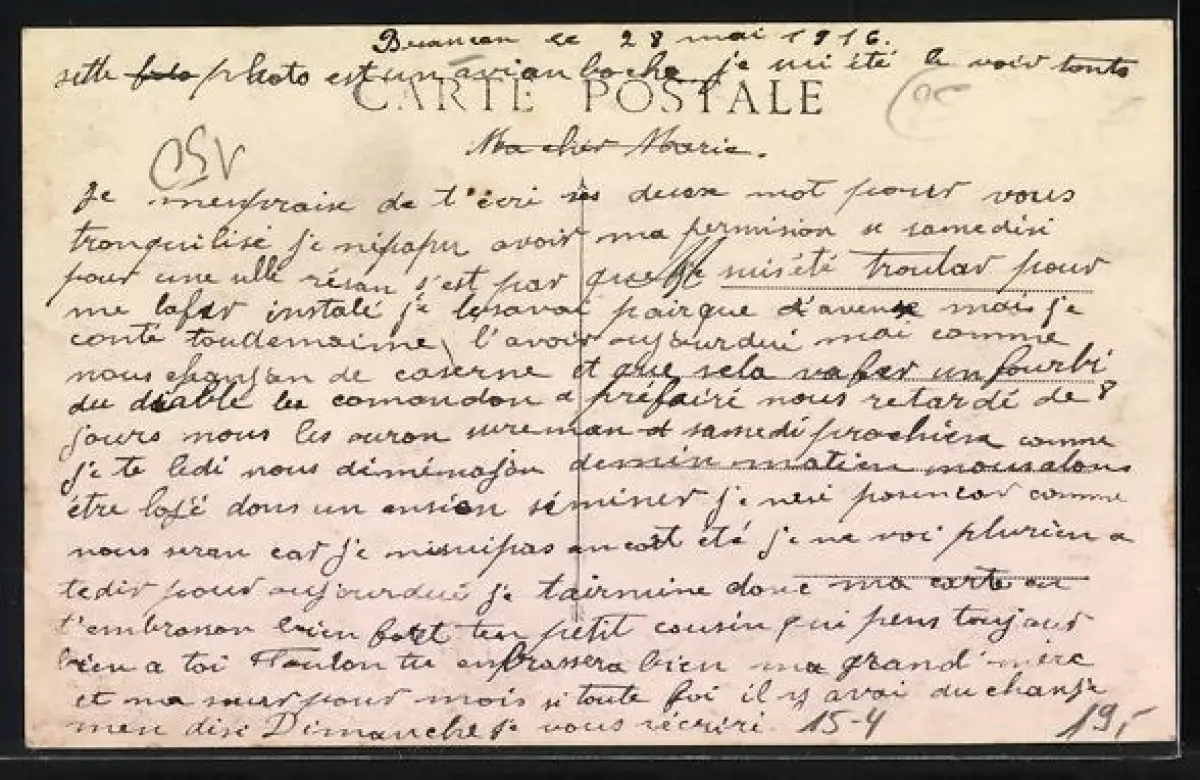 Besancon le 28 mai 1916.
sette photo est un avian boche je mi été le voir tonto
CARTE POSTALE
OSV
Ma cher Marie.
Je de t'écri ses deux mot pour vous
tronquilisé je népapu avoir ma permision se samedi
pour une ulle résan s'est par que je suis été trouvar pour
me lafer instalé je lesavai pairque d'avense mais je
conté toudemaime l'avoir aujourdui mai comme
nous chanjan de caserne et que sela vafair un fourbi
du diable le comandon a préfairé nous retardé de 8
jours nous les auron sureman samedi prochien comme
je te ledi nous diménajon demin matien nousalons
être lojé dons un ansien séminer je nesé pasencor comme
nous seran car je nisuipas ancort été je ne voi plurien a
tedir pour aujourdui je tairmine donc ma carte en
t'embrasan bien fort ton petit cousin qui pens toujour
bien a toi tu enbrassera bien ma grand'mère
et ma seur pour mois si toute foi il y avai du chanje
men disi Dimanche je vous récriré. 15-4
19,-